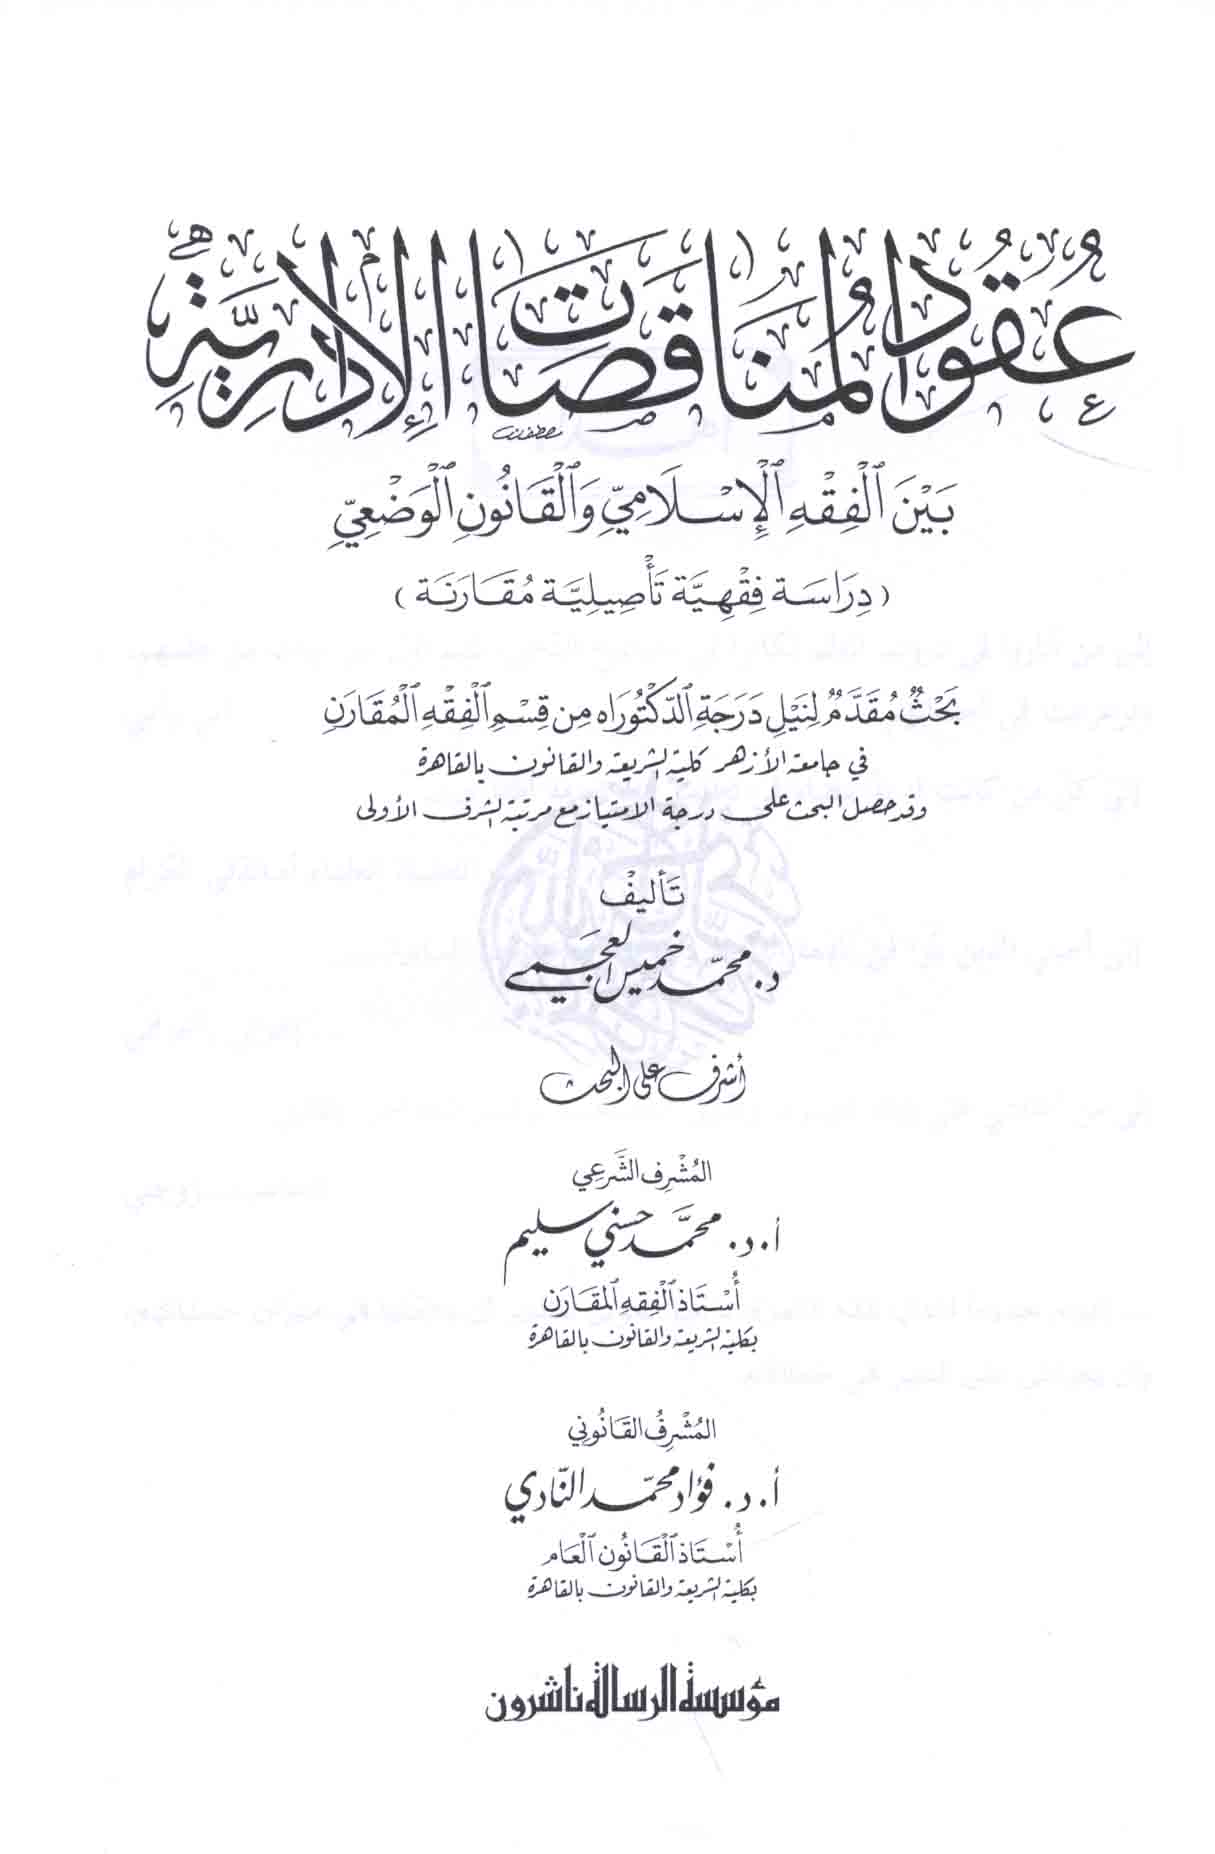 عُقُودُ المُنَاقَصَاتِ الإِدَارِيَّةِ
بَيْنَ الْفِقْهِ الْإِسْلَامِيِّ وَالْقَانُونِ الْوَضْعِيِّ
(دِرَاسَة فِقْهِيَّة تَأْصِيلِيَّة مُقَارَنَة)
بَحْثٌ مُقَدَّمٌ لِنَيْلِ دَرَجَةِ الدّكْتُورَاه مِن قِسْمِ الْفِقْهِ الْمُقَارَنِ
في جامعة الأزهر كلية الشريعة والقانون بالقاهرة
وقد حصل البحث على درجة الامتياز مع مرتبة الشرف الأولى
تَأليفْ
د. محمّد خميس العجمي
أشرف على البحث
المُشْرِف الشَّرعِي
أ. د. محمَّد حسني سليم
أُسْتَاذ الْفِقه المقَارَن
بكلية الشريعة والقانون بالقاهرة
المُشْرِفُ القَانُوني
أ. د. فؤاد محمّد النّادي
أُسْتَاذ الْقَانُون الْعَام
بكلية الشريعة والقانون بالقاهرة
مؤسسة الرسالة ناشرون